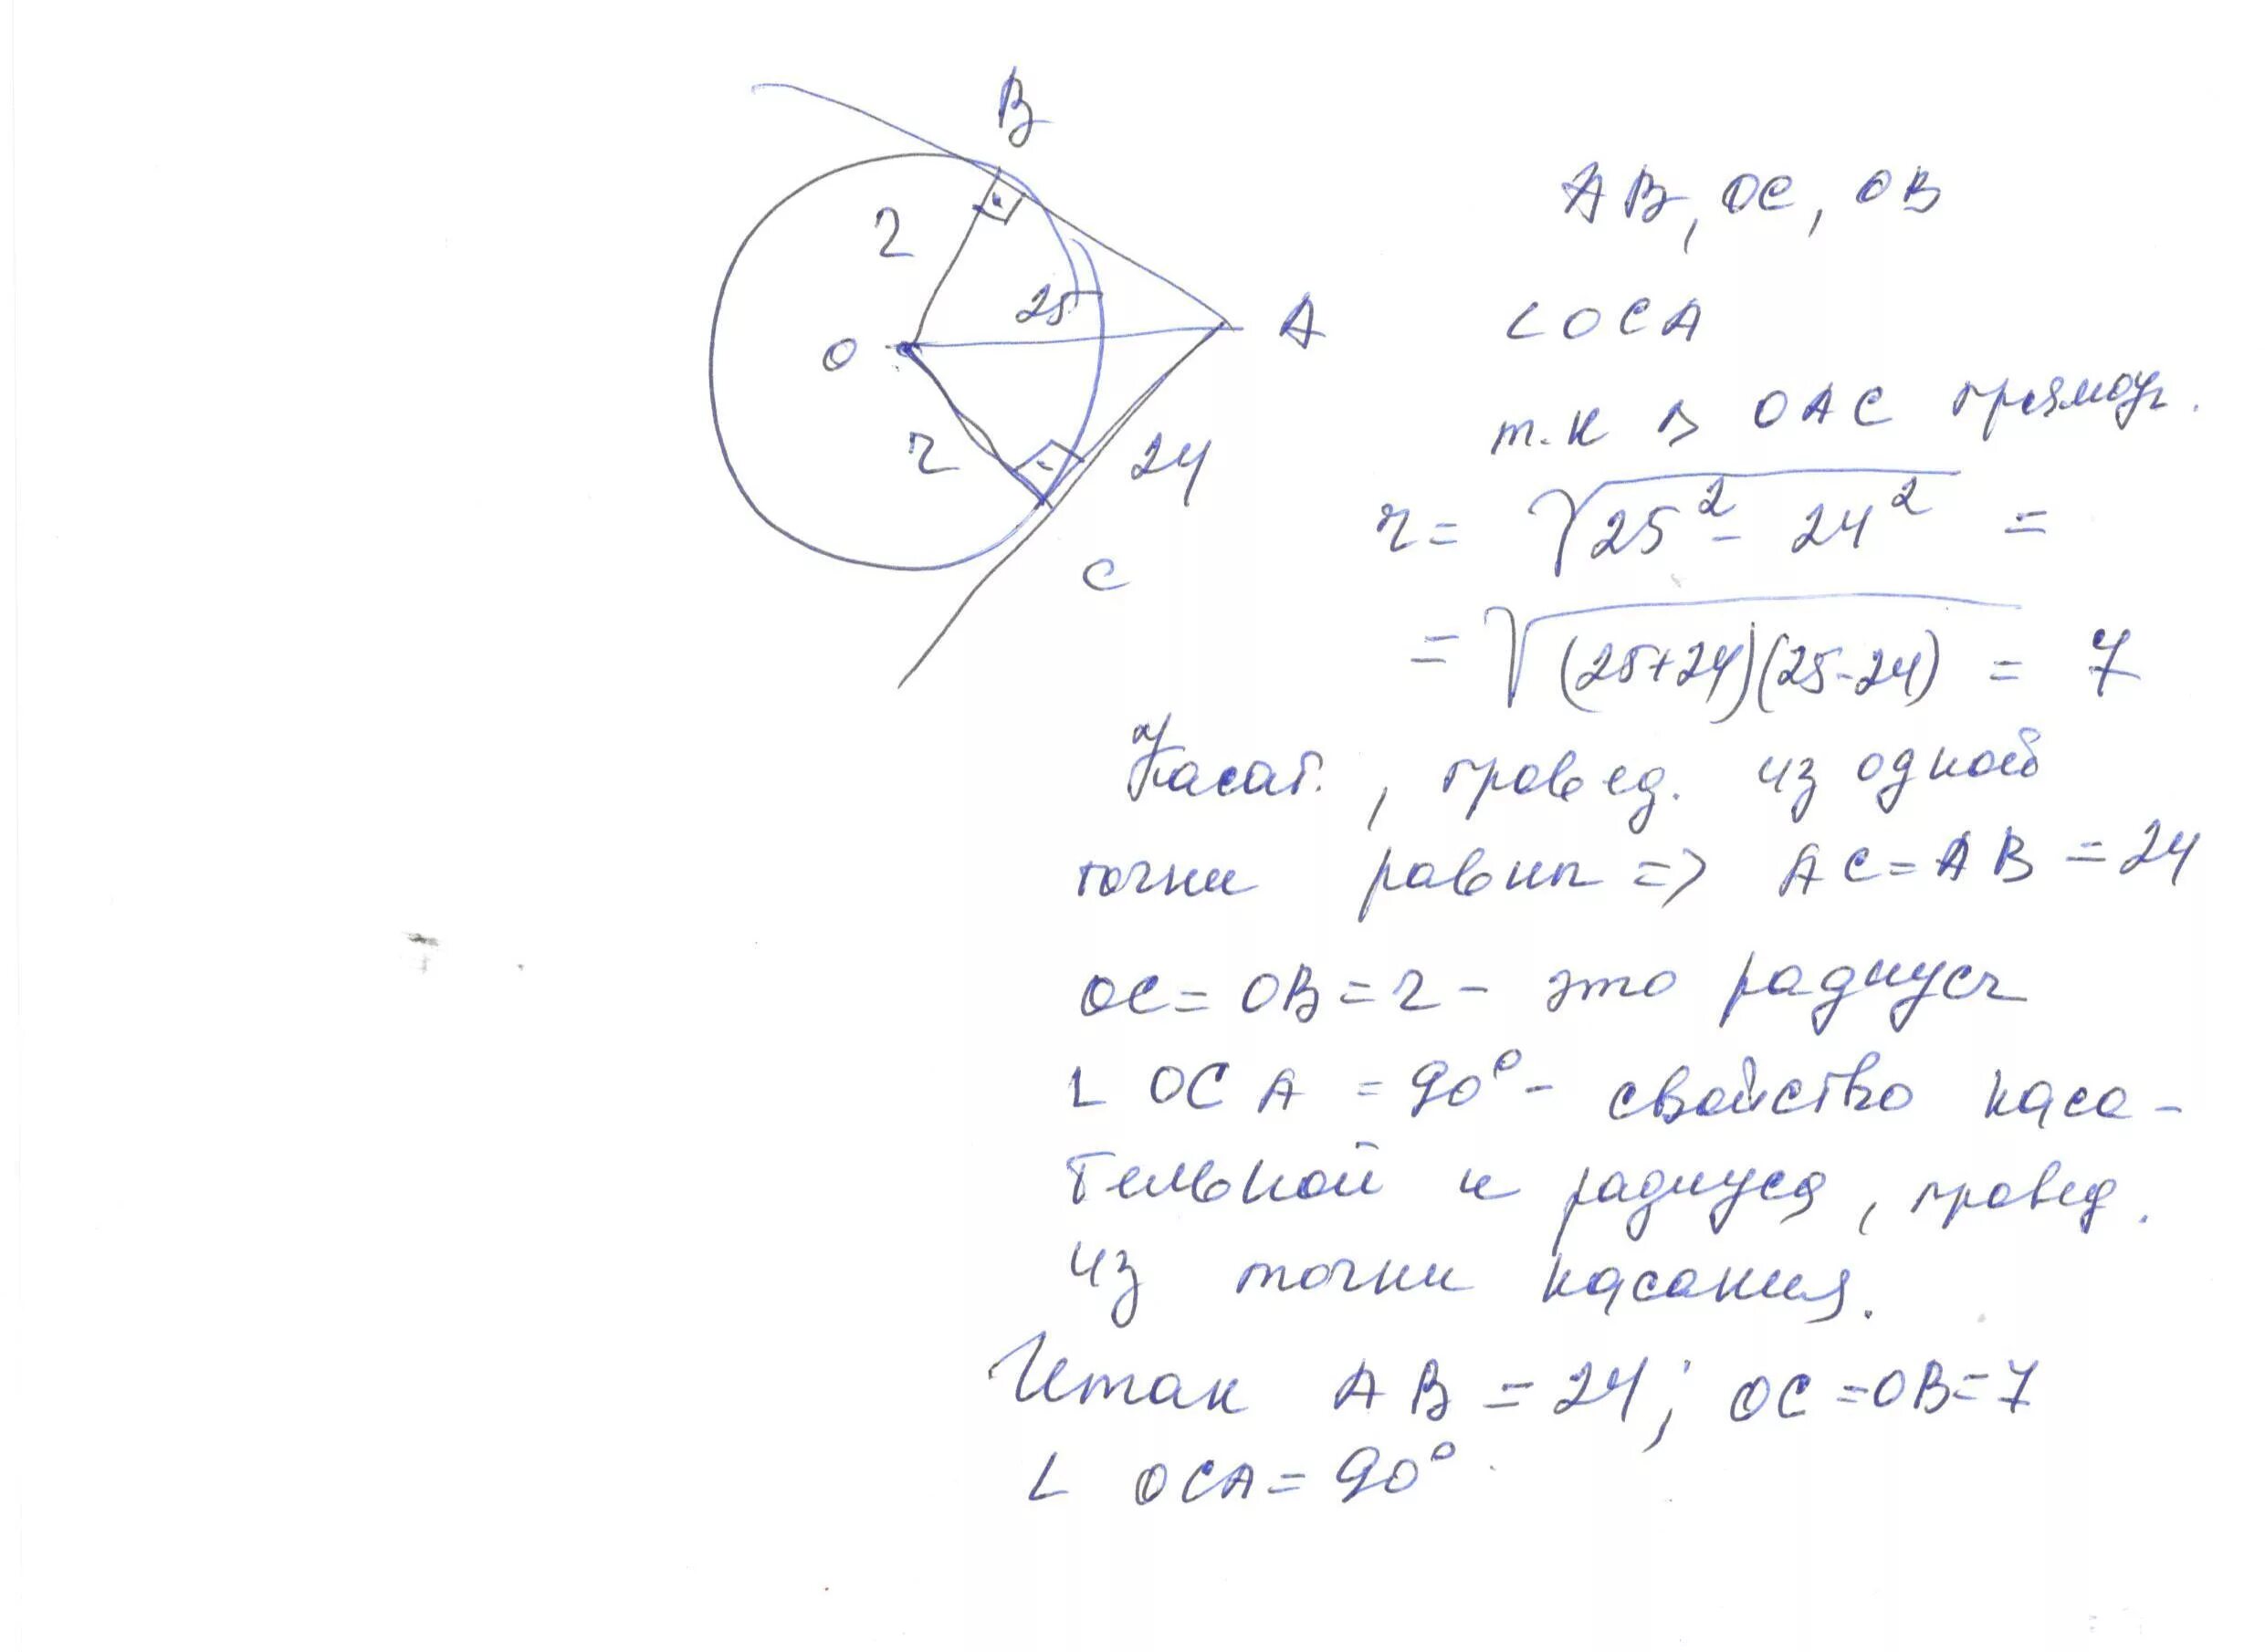 B
r
25
O
A
r
24
C
AB, OC, OB
∠OCA
т.к △ OAC прямоуг.
r = √25² - 24² =
= √(25+24)(25-24) = 7
Касат., провед. из одной
точки равны => AC = AB = 24
OC = OB = r - это радиусы
∠ OCA = 90° - свойство каса-
тельной и радиуса, провед.
из точки касания.
Итак AB = 24; OC = OB = 7
∠ OCA = 90°.